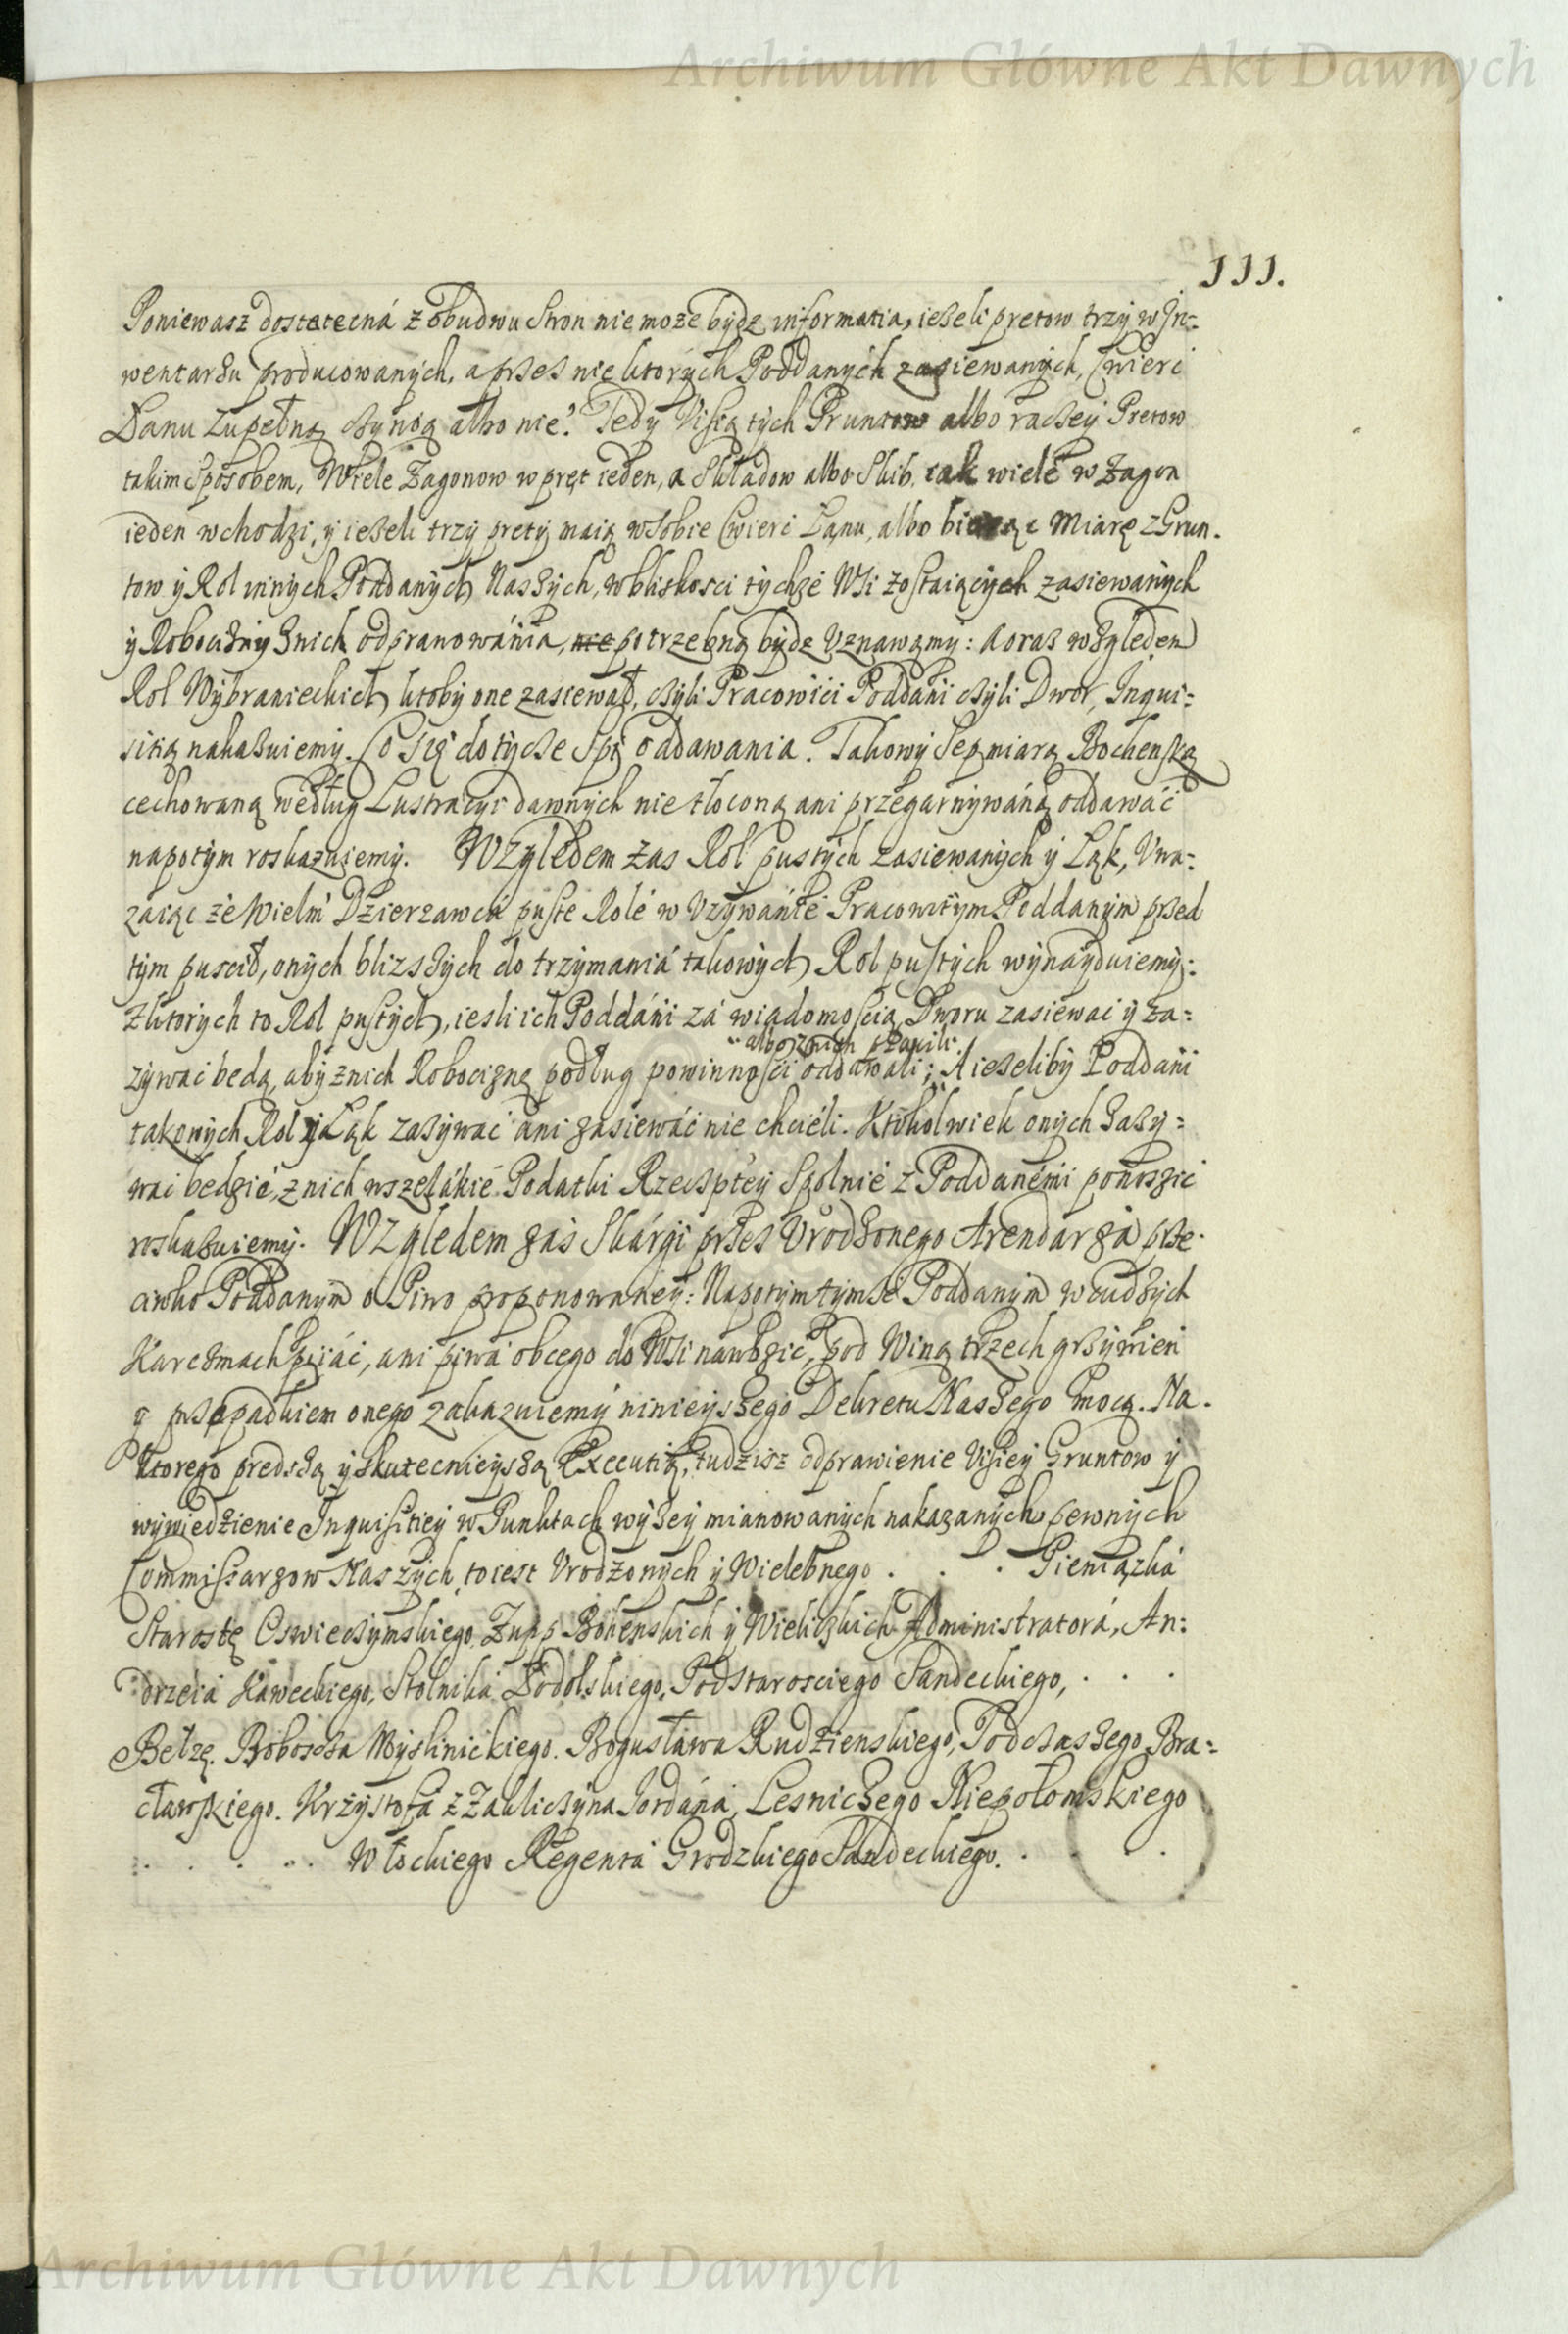 Archiwum Główne Akt Dawnych
111.
Poniewasz dostatecná z obudwu Stron nie moze bydz informatia, ieżeli pretow trzy w In=
wentarżu producowanych, a przez niektorych Poddanych zasiewanych, Cwierc
Łanu zupełną czynią albo nie? Tedy Visią tych Gruntow albo raczey Pretow
takim sposobem, Wiele Zagonow w pręt ieden, a Składow albo Skib iak wiele w Zagon
ieden wchodzi, y ieżeli trzy prety maią w sobie Cwierc Łanu, albo biorąc Miarę z Grun.
tow y Rol innych Poddanych Naszych, w bliskosci tychże Wsi zostaiących zasiewanych
y Robocizny z nich odpranowánia, nie potrzebną bydz Vznawamy: a oraz względem
Rol Wybranieckich ktoby one zasiewał, czyli Pracowici Poddani czyli Dwor, Inqui=
sitią nakazuiemy. Co się dotycze Spy oddawania. Takowy Sep miarą Bochenską
cechowaną według Lustracyi dawnych nie tłoconą ani przegarnywáną oddawáć
napotym roskazuiemy. Względem zas Rol pustych zasiewanych y Łąk, Vwa=
zaiąc że Wielm Dzierzawca puste Rolé w Vzywánié Pracowitym Poddanym przed
tym puscił, onych blizszych do trzymaniá takowych Rol pustych wynayduiemy:
Z ktorych to Rol pustych, iesli ich Poddáni zá wiadomoscią Dworu zasiewac y za=
albo z nich płacili.
zywac bedą, aby z nich Robociznę podług powinnosci oddawali; A ieżeliby Poddani
takowych Rol y Łąk zażywac ani zasiewáć nie chcieli. Ktokolwiek onych zaży=
wac bedzie, z nich wszelákie Podatki Rzeczptey Spolnie z Poddanémi ponoszic
roskazuiemy. Względem zas Skárgi przez Vrodzonego Arendarza prze-
ciwko Poddanym o Piwo proponowaney: Napotym tymże Poddanym w cudzych
Karczmach piiác, ani piwá obcego do Wsi nawozic, pod Winą trzech grzywien
y przepadkiem onego zakazuiemy ninieyszego Dekretu Naszego mocą. Na.
Ktorego predszą y skutecnieyszą Executią, tudzisz odprawienie Visiey Gruntow y
wywiedzienie Inquisitiey w Punktach wyżey mianowanych nakazanych pewnych
Commissarzow Naszych, to iest Vrodzonych y Wielebnego . . . Pieniązká
Starostę Oswieczymskiego, Zupp Bohenskich y Wieliczkich Administratorá, An=
drzeia Kaweckiego, Stolnika Podolskiego, Podstarosciego Sandeckiego, . . .
Bełzę. Proboscza Myslinickiego. Bogusława Rudzienskiego, Podczaszego Bra=
cławskiego. Krzysztofa z Zakliczyna Jordána, Lesniczego Niepołomskiego
. . . . Włockiego Regenta Grodzkiego Sandeckiego. . . .
Archiwum Główne Akt Dawnych